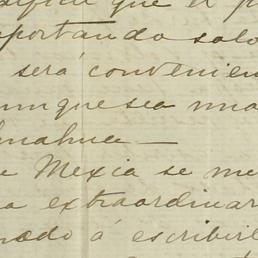 que el p
portando solo
será convenien
unque sea una
huahua —
e Mexia se me
a extraordinar
á escribirl